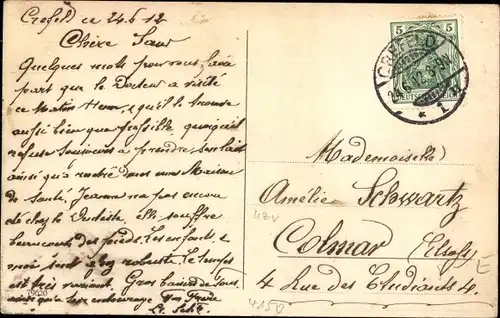 Crefeld ce 24.6.12
Chère Sœur
Quelques mots pour vous faire
part que le Docteur a visité
ce Matin et qu'il le trouve
aussi bien que possible, quoiqu'il
refuse toujours à prendre son lait
ainsi qu'à rentrer dans une Maison
de Santé. Jeanne n'a pas encore
été chez le Dentiste, elle souffre
beaucoup des pieds. Les enfants et
moi sont très robuste. le temps
est très variant. Gros baisers de Tous
ainsi qu'à son entourage Ton Frère
79620
5 5
CREFELD
24.6.12.
* 1
Mademoiselle
Amélie Schwartz
Colmar Elsass
4 Rue des Etudiants 4.
4150
E